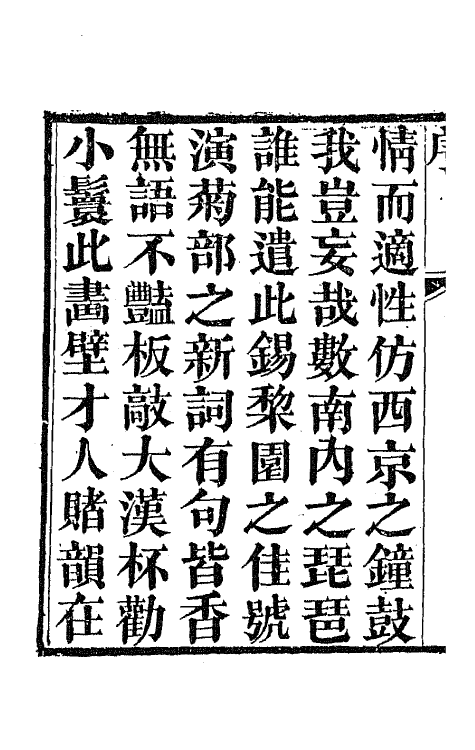 情而適性仿西京之鐘鼓
我豈妄哉數南内之琵琶
誰能遣此錫棃園之佳號
演菊部之新詞有句皆香
無語不豔板敲大漢杯勸
小鬟此畵壁才人賭韻在